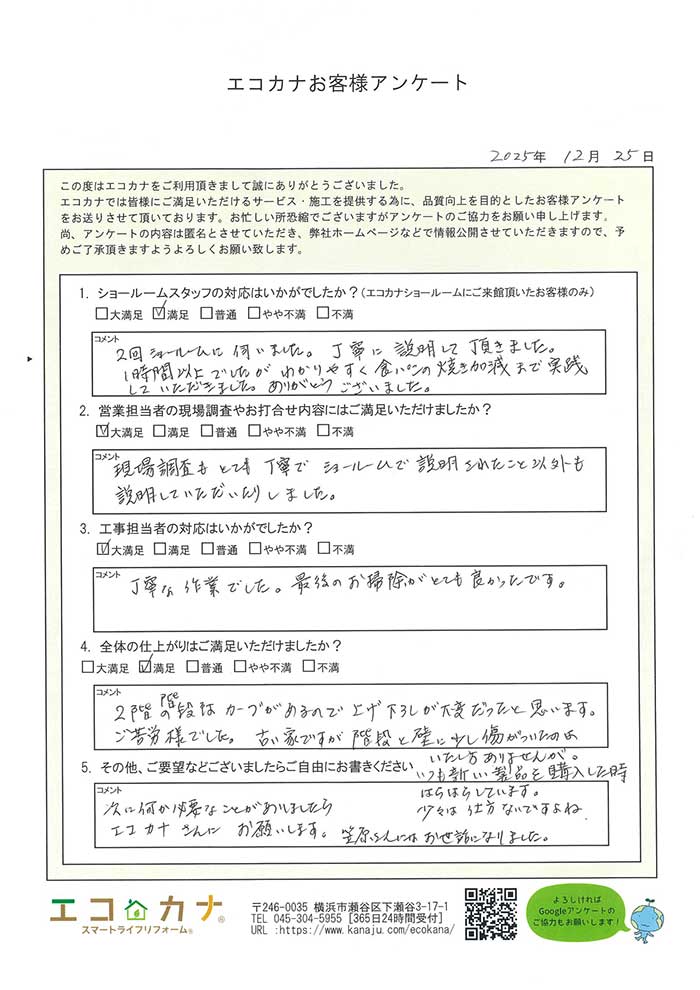 エコカナお客様アンケート
2025年 12月 25日
この度はエコカナをご利用頂きまして誠にありがとうございました。
エコカナでは皆様にご満足いただけるサービス・施工を提供する為に、品質向上を目的としたお客様アンケート
をお送りさせて頂いております。お忙しい所恐縮でございますがアンケートのご協力をお願い申し上げます。
尚、アンケートの内容は匿名とさせていただき、弊社ホームページなどで情報公開させていただきますので、予
めご了承頂きますようよろしくお願い致します。
1. ショールームスタッフの対応はいかがでしたか？（エコカナショールームにご来館頂いたお客様のみ）
□大満足 ☑満足 □普通 □やや不満 □不満
コメント
2回ショールームに伺いました。丁寧に説明して頂きました。
1時間以上でしたがわかりやすく食パンの焼き加減まで実践
していただきました。ありがとうございました。
2. 営業担当者の現場調査やお打合せ内容にはご満足いただけましたか？
☑大満足 □満足 □普通 □やや不満 □不満
コメント
現場調査もとても丁寧でショールームで説明されたこと以外も
説明していただいたりしました。
3. 工事担当者の対応はいかがでしたか？
☑大満足 □満足 □普通 □やや不満 □不満
コメント
丁寧な作業でした。最後のお掃除がとても良かったです。
4. 全体の仕上がりはご満足いただけましたか？
□大満足 ☑満足 □普通 □やや不満 □不満
コメント
2階の階段はカーブがあるので上げ下ろしが大変だったと思います。
ご苦労様でした。古い家ですが階段と壁に少し傷がついたのは
いたし方ありませんが。
いつも新しい製品を購入した時
はらはらしています。
少々は仕方ないですよね
5. その他、ご要望などございましたらご自由にお書きください
コメント
次に何か必要なことがありましたら
エコカナさんにお願いします。笠原さんにはお世話になりました。
エコカナ®
スマートライフリフォーム®
〒246-0035 横浜市瀬谷区下瀬谷3-17-1
TEL 045-304-5955 [365日24時間受付]
URL :https://www.kanaju.com/ecokana/
よろしければ
Googleアンケートの
ご協力もお願いします！